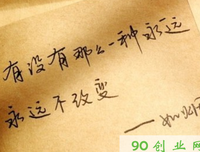 有没有那么一种永远
永远不改变
90创业网